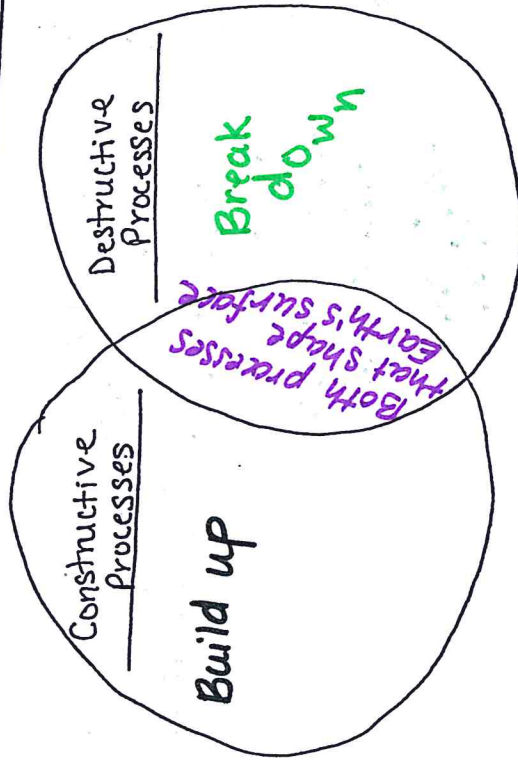 Constructive
Processes
Build up
Both processes
that shape
Earth's surface
Destructive
Processes
Break
down